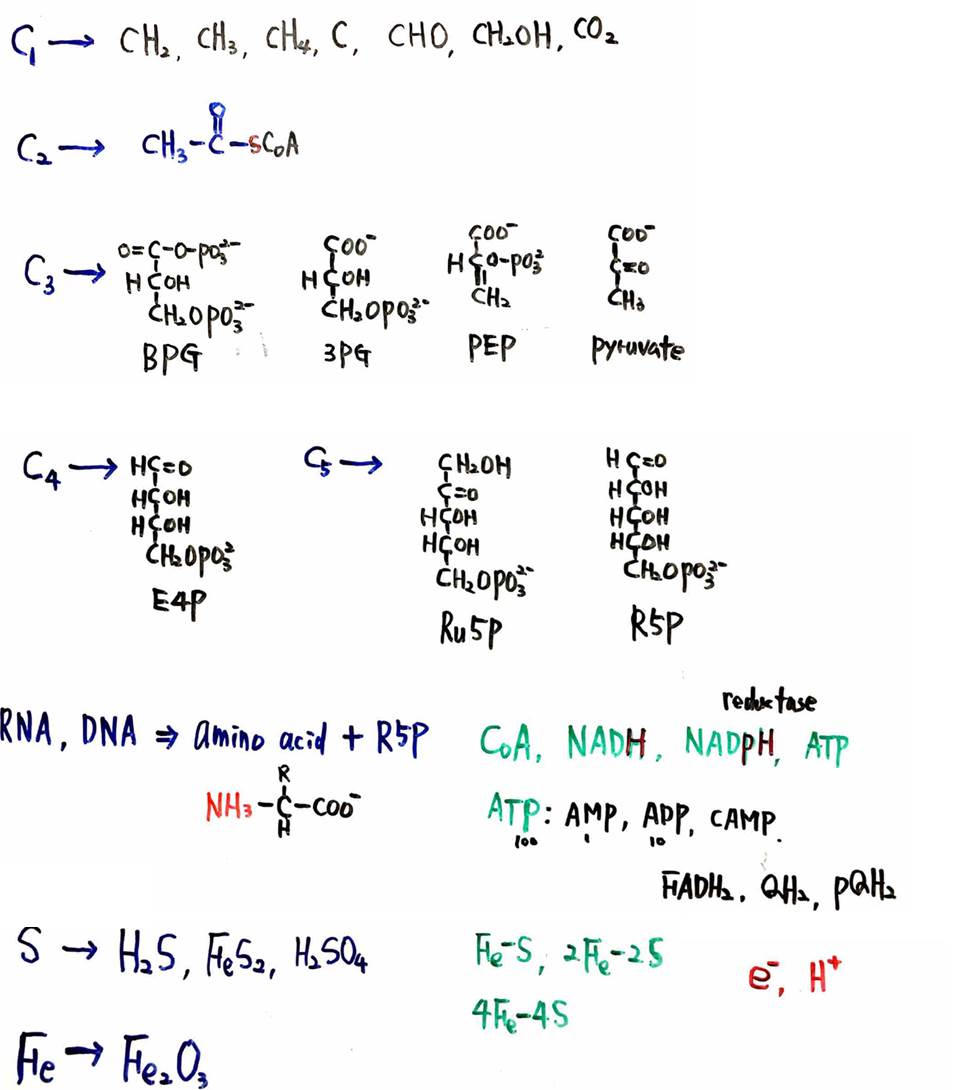 C₁ → CH₂, CH₃, CH₄, C, CHO, CH₂OH, CO₂
C₂ → CH₃-C-SCoA
O
C₃ →
O=C-O-PO₃²⁻
HCOH
CH₂OPO₃²⁻
BPG
COO⁻
HCOH
CH₂OPO₃²⁻
3PG
COO⁻
HCO-PO₃²
CH₂
PEP
COO⁻
C=O
CH₃
pyruvate
C₄ →
HC=O
HCOH
HCOH
CH₂OPO₃²
E4P
C₅ →
CH₂OH
C=O
HCOH
HCOH
CH₂OPO₃²⁻
Ru5P
HC=O
HCOH
HCOH
HCOH
CH₂OPO₃²⁻
R5P
RNA, DNA ⇒ amino acid + R5P
R
NH₃-C-COO⁻
H
reductase
CoA, NADH, NADPH, ATP
ATP: AMP, ADP, CAMP.
100 1 10
FADH₂, QH₂, PQH₂
S → H₂S, FeS₂, H₂SO₄
Fe-S, 2Fe-2S
4Fe-4S
e⁻, H⁺
Fe → Fe₂O₃